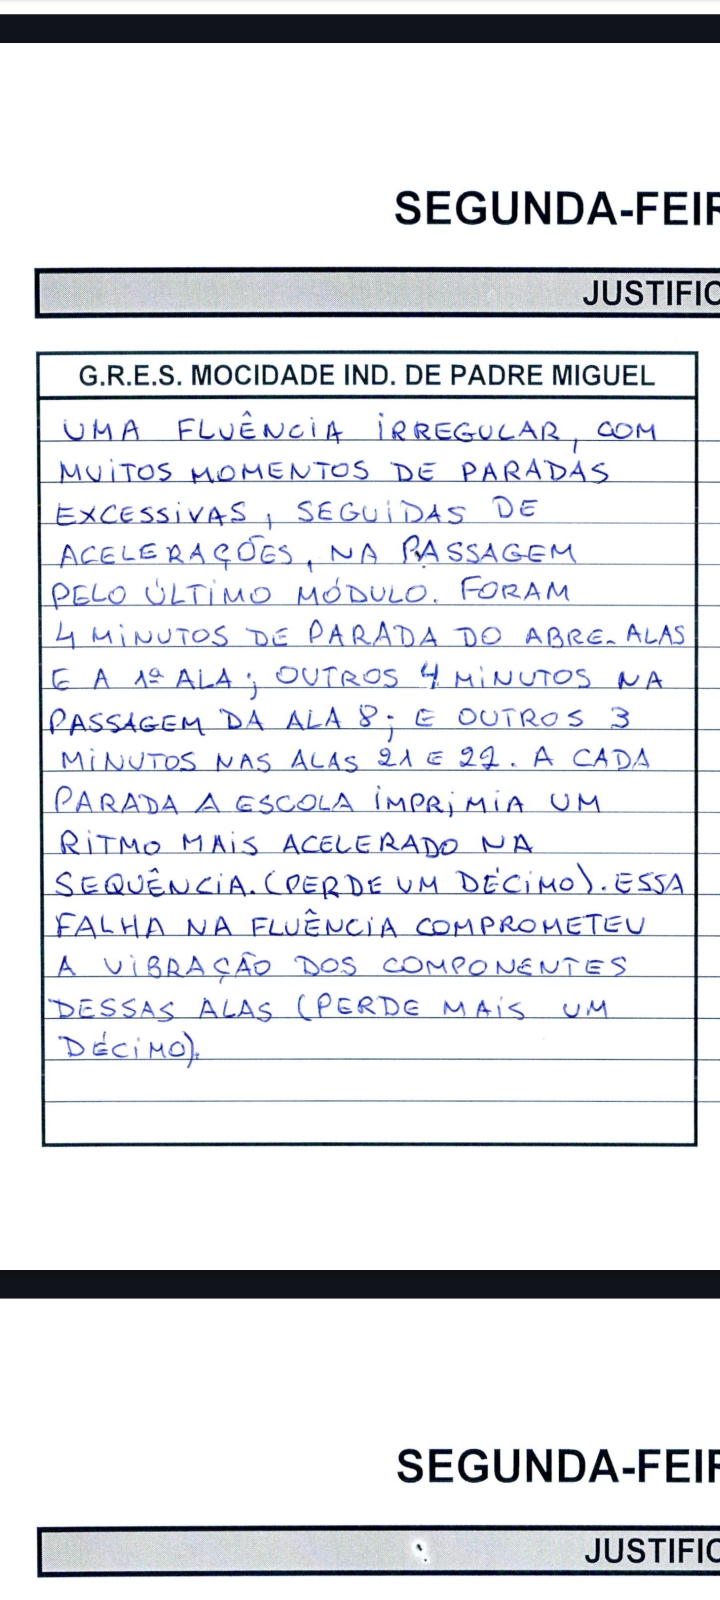 SEGUNDA-FEIR
JUSTIFIC
G.R.E.S. MOCIDADE IND. DE PADRE MIGUEL
UMA FLUÊNCIA IRREGULAR, COM
MUITOS MOMENTOS DE PARADAS
EXCESSIVAS, SEGUIDAS DE
ACELERAÇÕES, NA PASSAGEM
PELO ÚLTIMO MÓDULO. FORAM
4 MINUTOS DE PARADA DO ABRE-ALAS
E A 1ª ALA; OUTROS 4 MINUTOS NA
PASSAGEM DA ALA 8; E OUTROS 3
MINUTOS NAS ALAS 21 E 22. A CADA
PARADA A ESCOLA IMPRIMIA UM
RITMO MAIS ACELERADO NA
SEQUÊNCIA. (PERDE UM DÉCIMO). ESSA
FALHA NA FLUÊNCIA COMPROMETEU
A VIBRAÇÃO DOS COMPONENTES
DESSAS ALAS (PERDE MAIS UM
DÉCIMO).
SEGUNDA-FEIR
JUSTIFIC